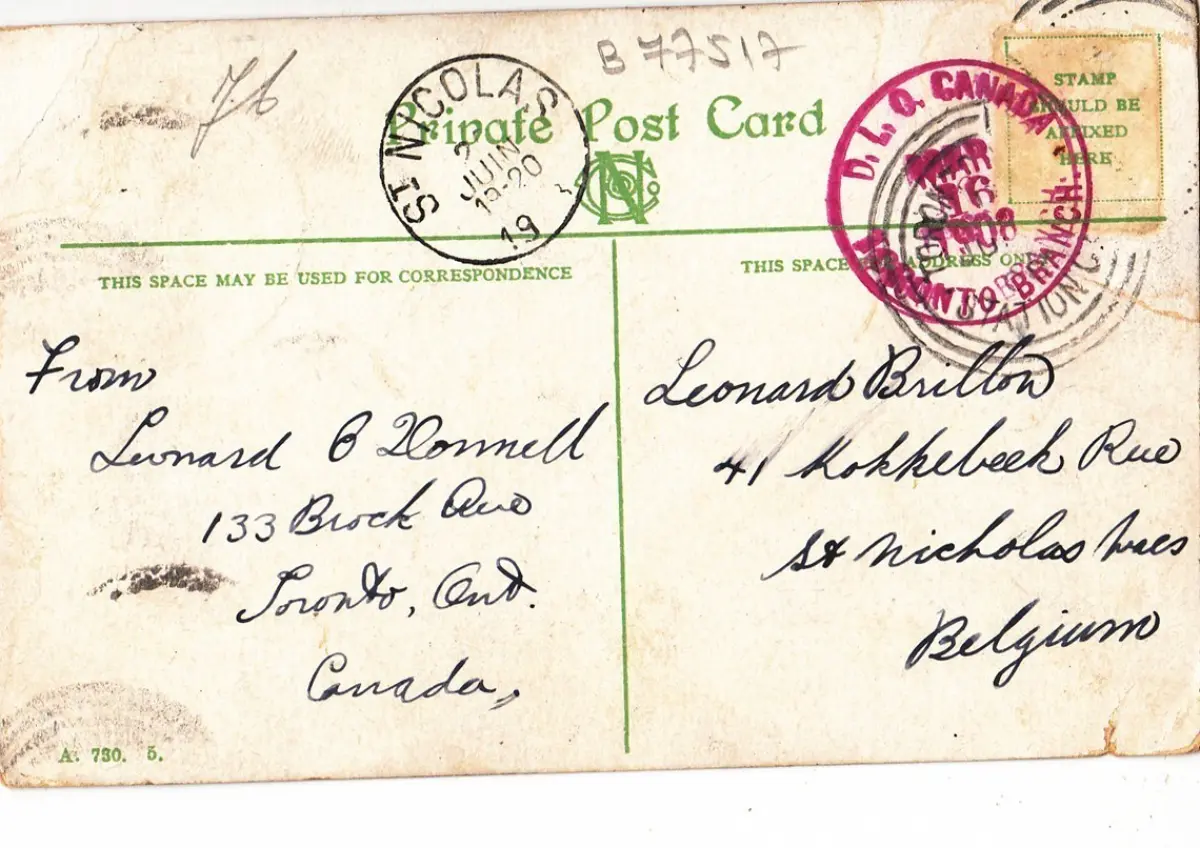 7b
B 77517
ST NICOLAS
2
JUIN
18-20
19
Private Post Card
D. L. O. CANADA
MAR
16
1908
TORONTO BRANCH
STATION C
STAMP
SHOULD BE
AFFIXED
HERE
THIS SPACE MAY BE USED FOR CORRESPONDENCE
THIS SPACE ADDRESS ONLY
From
Leonard O Donnell
133 Brock Ave
Toronto, Ont.
Canada,
Leonard Brillon
41 Kokkebeek Rue
St Nicholas Waes
Belgium
A. 730. 5.